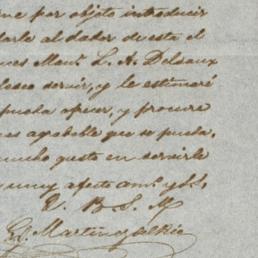 ne por objeto introducir
darle al dador de esta el
L. A. Delsaux
deseo servir, y le estimaré
pueda ofrecer, y procure
agradable que se pueda,
mucho gusto en servirle
y muy afecto
V. B. S. M.
Martin